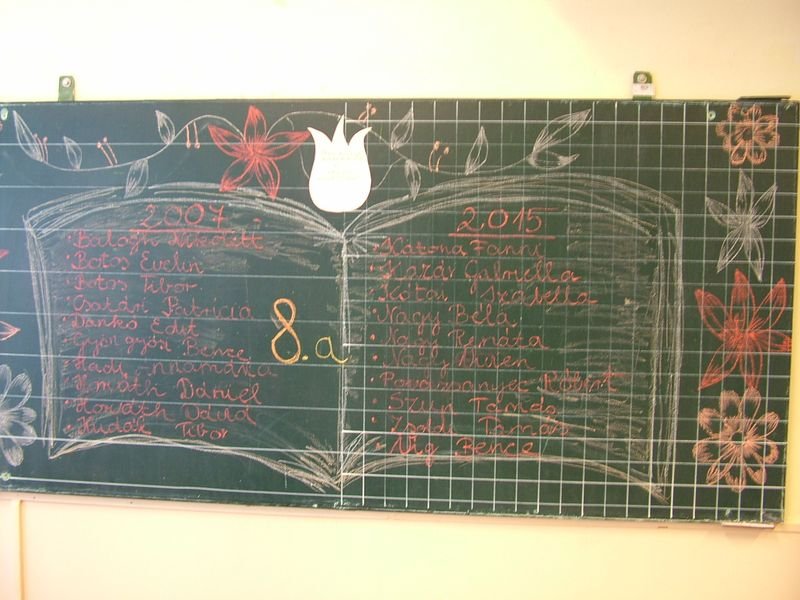 2007
Balogh Nikolett
Botos Evelin
Botos Tibor
Csatári Patrícia
Dankó Edit
Gyöngyösi Bence
Hadi Annamária
Horváth Dániel
Horváth Dávid
Hudák Tibor
8.a
2015
Katona Fanni
Kazár Gabriella
Kótai Izabella
Nagy Béla
Nagy Renáta
Nagy
Róbert
Szőke Tamás
Zsolti Tamás
Víg Bence